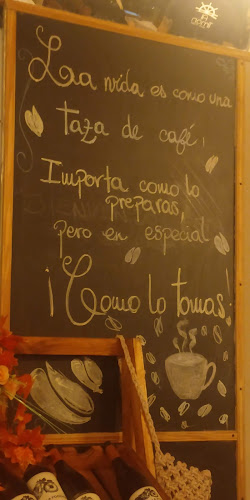 La vida es como una
taza de café,
Importa como lo
preparas,
pero en especial
¡Como lo tomas!